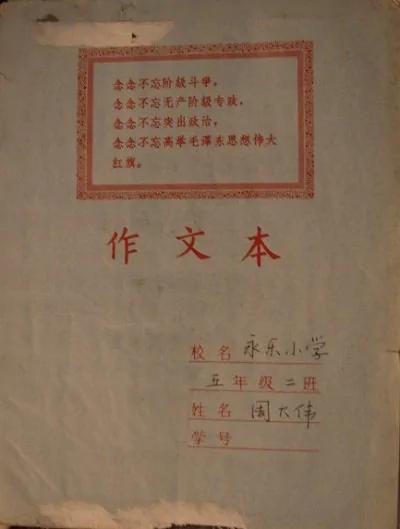 念念不忘阶级斗争，
念念不忘无产阶级专政，
念念不忘突出政治，
念念不忘高举毛泽东思想伟大
红旗。
作文本
校名 永乐小学
五年级二班
姓名 周大伟
学号